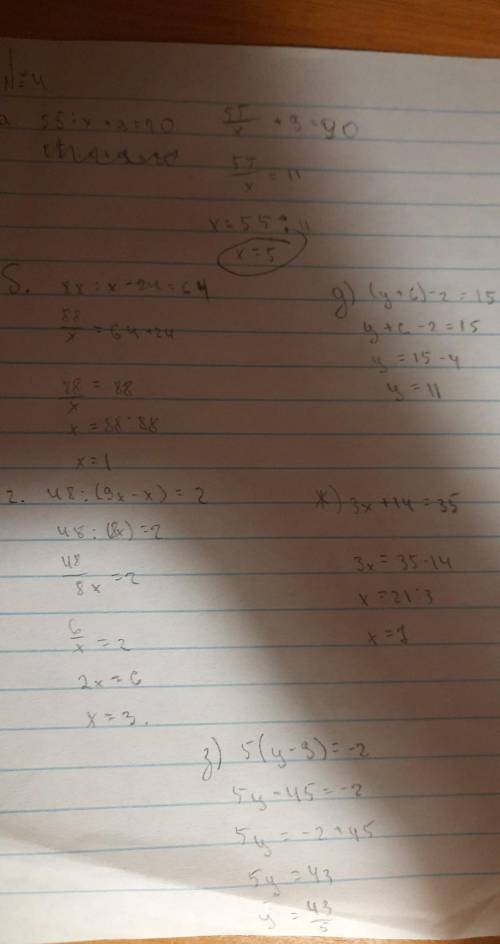 N=4
a 55:x+9=20
55/x +9=90
55/x = 11
x=55:11
x=5
б. 88:x-24=64
88/x = 64+24
88/x = 88
x = 88:88
x=1
g) (y+6)-2=15
y+6-2=15
y=15-4
y=11
г. 48:(9x-x)=2
48:(8x)=2
48/8x =2
6/x =2
2x=6
x=3.
ж) 3x+14=35
3x=35-14
x=21:3
x=7
з) 5(y-9)=-2
5y-45=-2
5y=-2+45
5y=43
y = 43/5